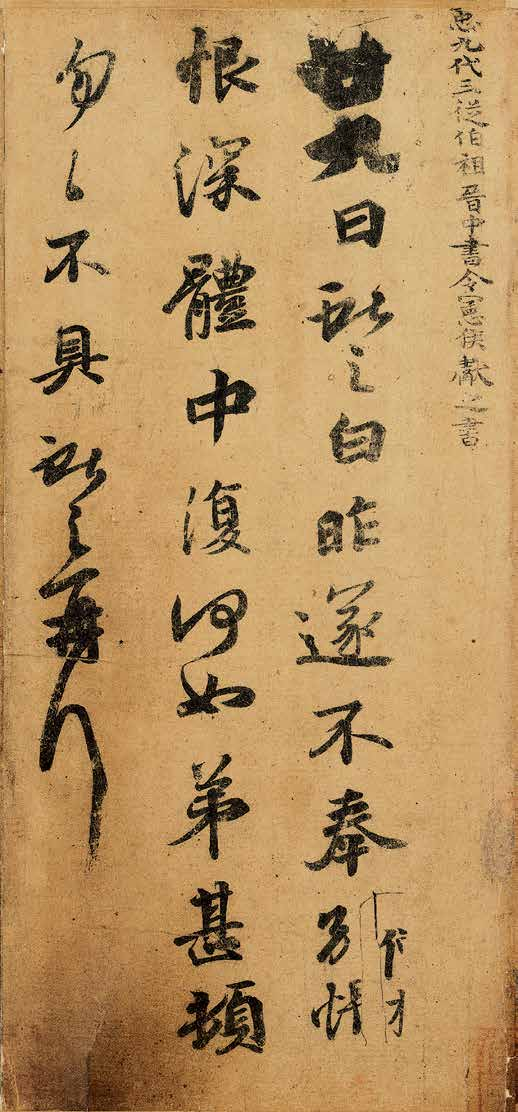 臣九代三從伯祖晉中書令憲侯獻之書
廿九日獻之白昨遂不奉別悵
恨深體中復何如弟甚頓
匆〻不具獻之再拜